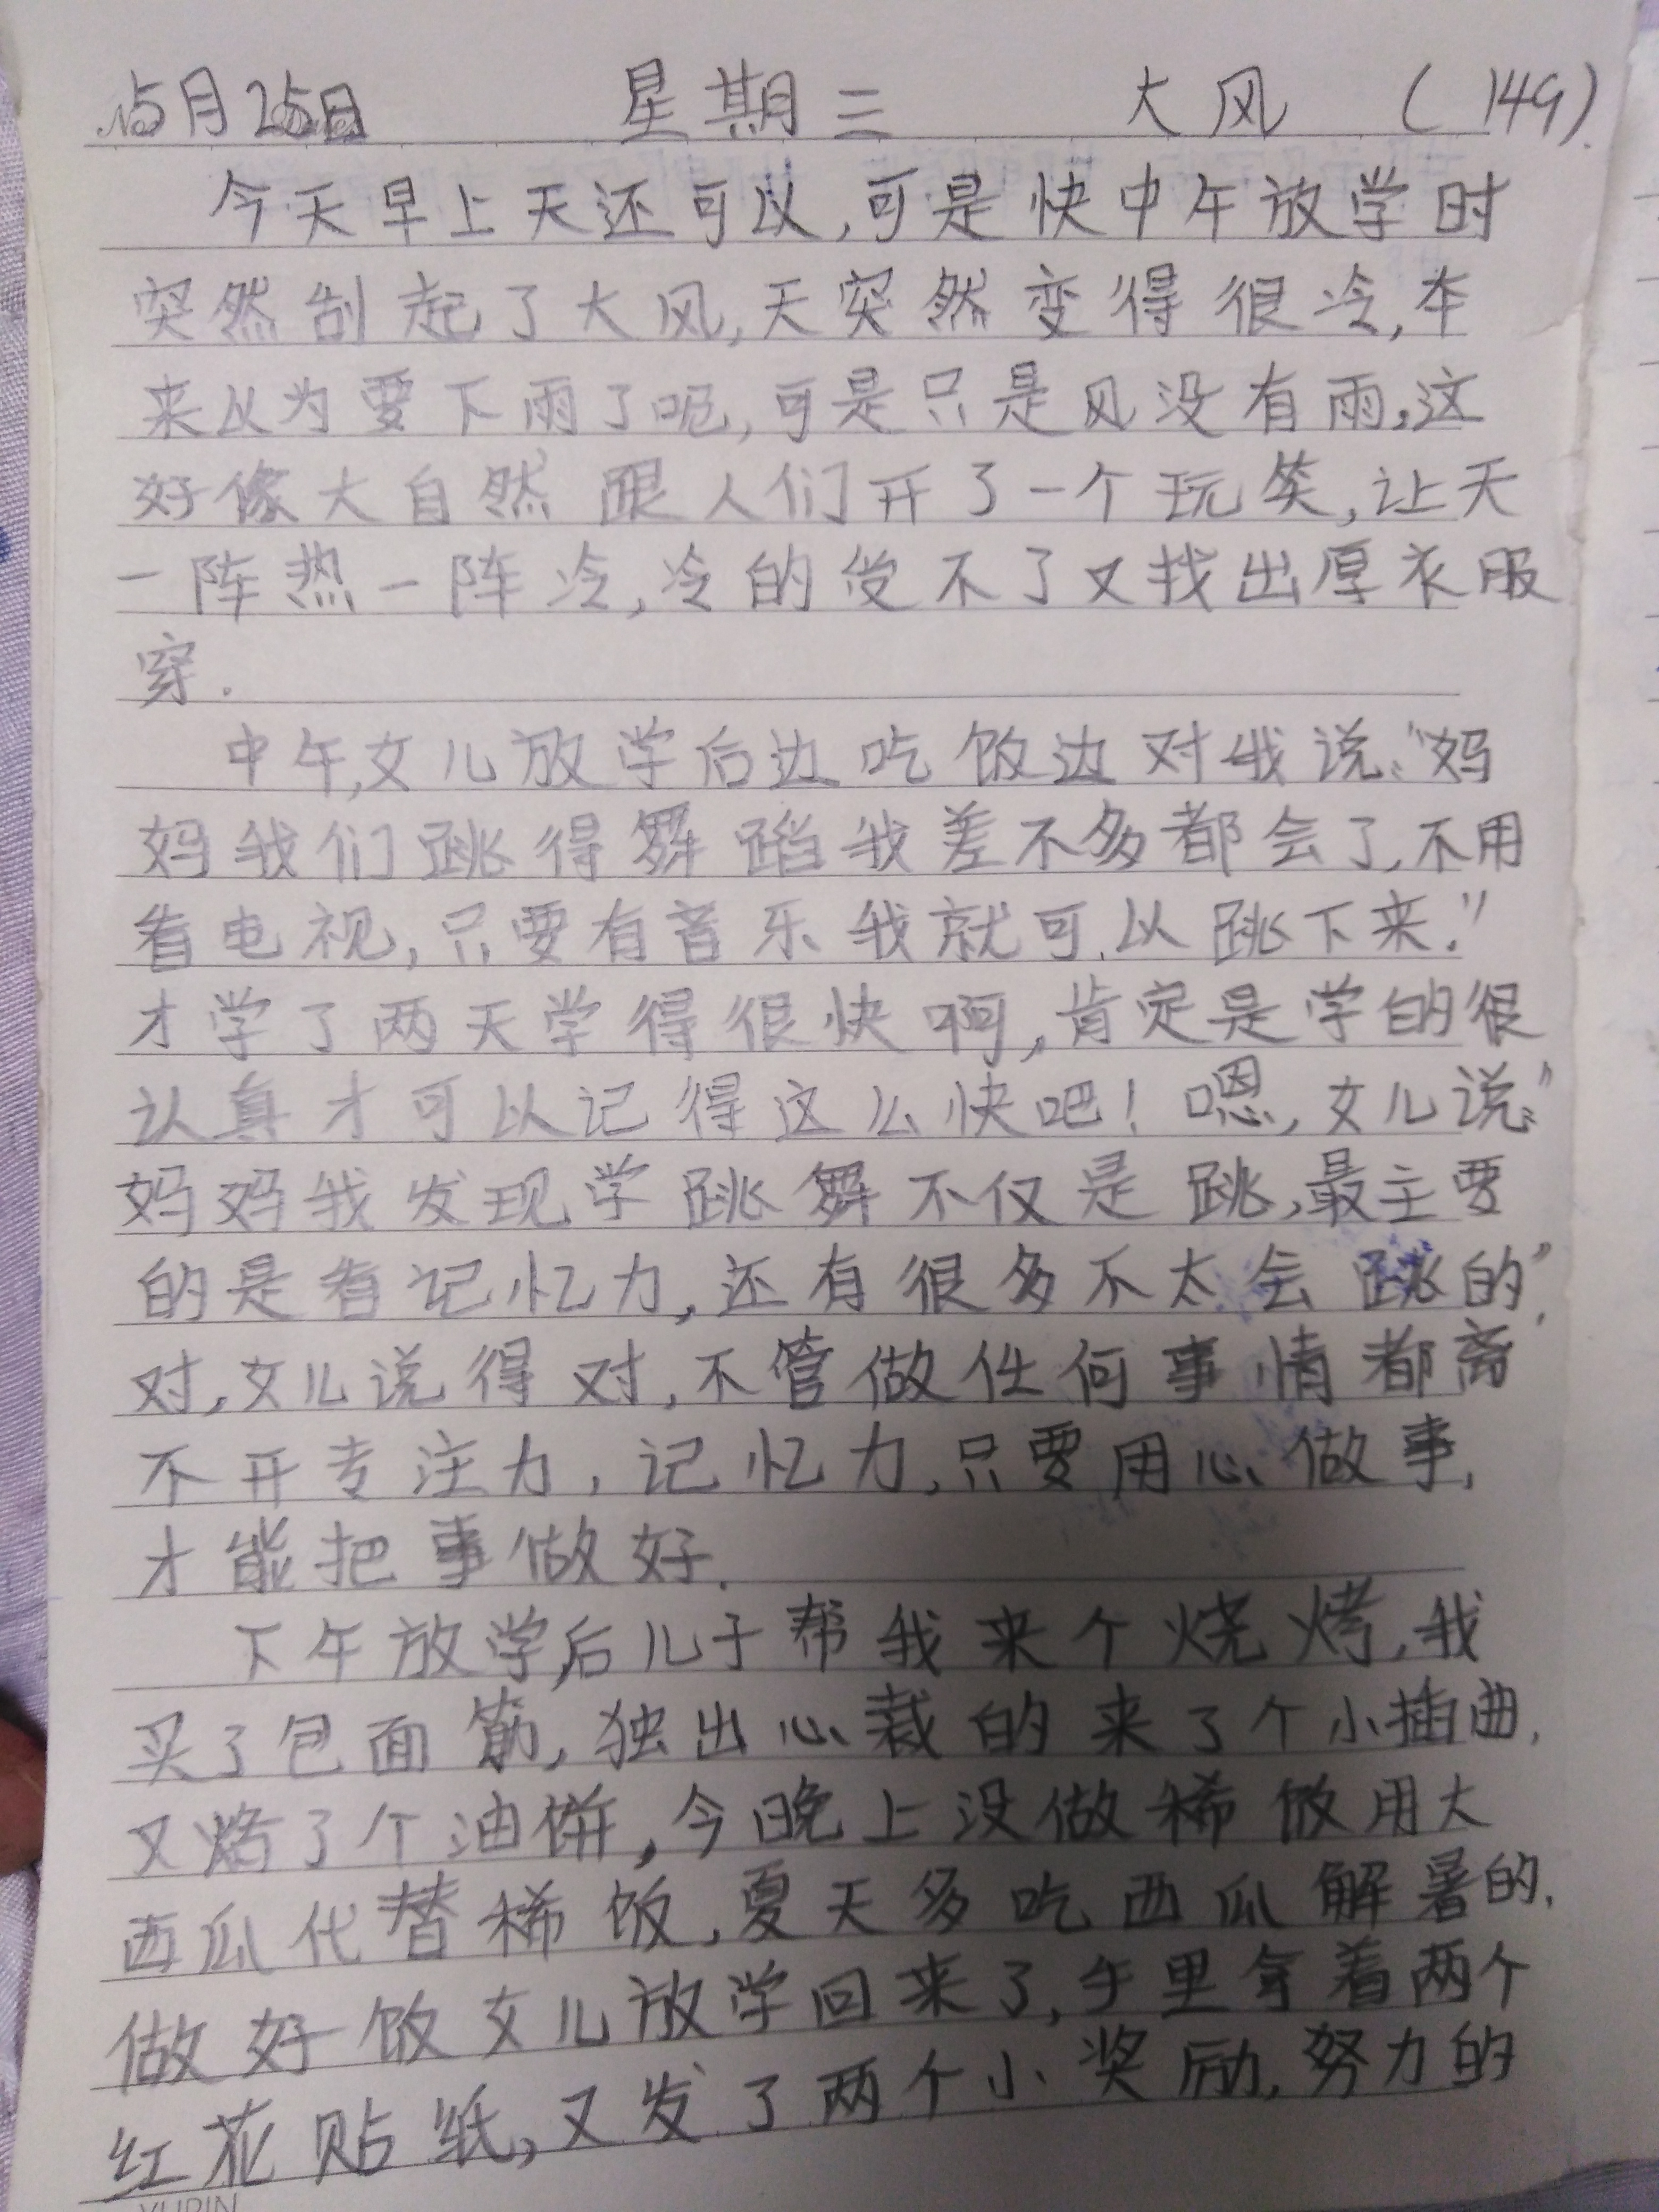 5月25日 星期三 大风 (149)
今天早上天还可以,可是快中午放学时
突然刮起了大风,天突然变得很冷,本
来以为要下雨了呢,可是只是风没有雨,这
好像大自然跟人们开了一个玩笑,让天
一阵热一阵冷,冷的受不了又找出厚衣服
穿.
中午,女儿放学后边吃饭边对我说:"妈
妈我们跳得舞蹈我差不多都会了,不用
看电视,只要有音乐我就可以跳下来."
才学了两天学得很快啊,肯定是学的很
认真才可以记得这么快吧!嗯,女儿说:"
妈妈我发现学跳舞不仅是跳,最主要
的是看记忆力,还有很多不太会跳的".
对,女儿说得对,不管做任何事情都离
不开专注力,记忆力,只要用心做事,
才能把事做好.
下午放学后儿子帮我来个烧烤,我
买了包面筋,独出心裁的来了个小插曲,
又烤了个油饼,今晚上没做稀饭用大
西瓜代替稀饭,夏天多吃西瓜解暑的,
做好饭女儿放学回来了,手里拿着两个
红花贴纸,又发了两个小奖励,努力的
YUPIN